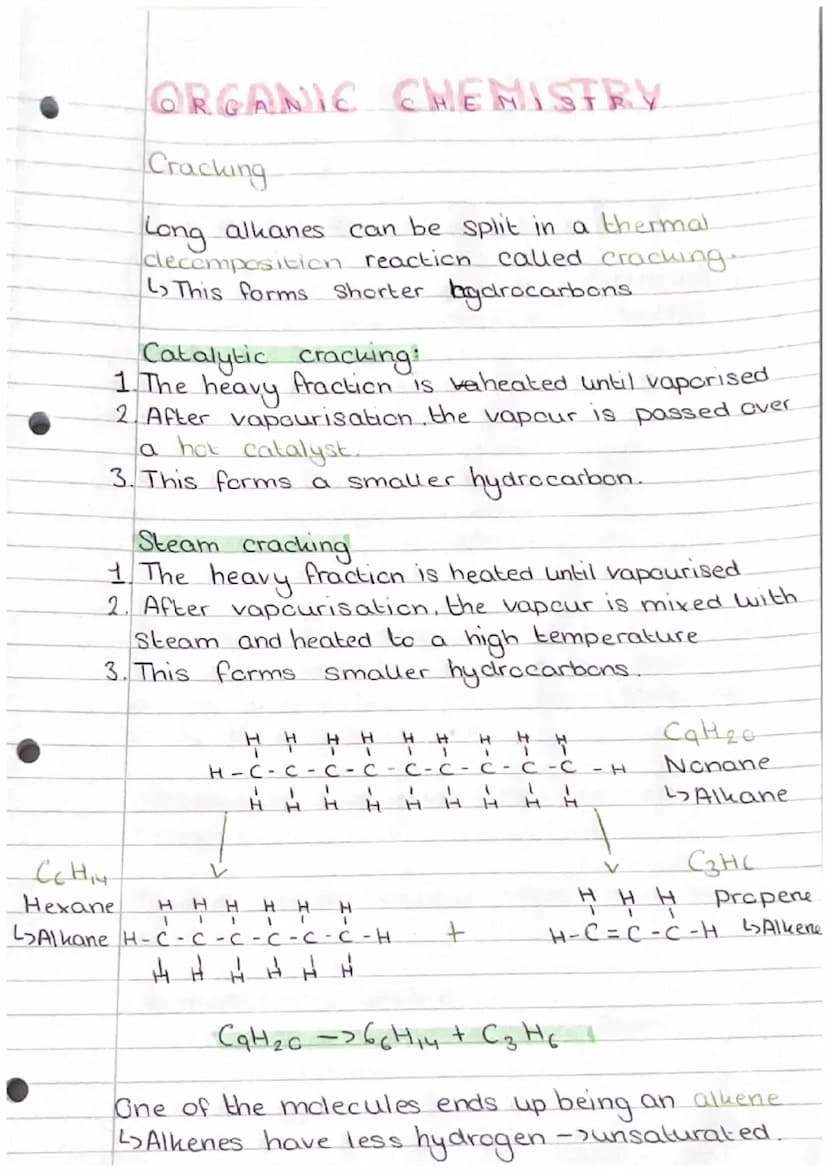 ORGANIC CHEMISTRY
Cracking
Long alkanes can be split in a thermal
decomposition reaction called cracking.
↳ This forms shorter hydrocarbons
Catalytic cracking:
1. The heavy fraction is heated until vaporised
2. After vapourisation, the vapour is passed over
a hot catalyst.
3. This forms a smaller hydrocarbon.
Steam cracking
1. The heavy fraction is heated until vapourised
2. After vapourisation, the vapour is mixed with
steam and heated to a high temperature
3. This forms smaller hydrocarbons.
H H H H H H H H H C9H20
H-C-C-C-C-C-C-C-C-C-H Nonane
H H H H H H H H H ↳Alkane
C6H14 C3H6
Hexane H H H H H H H H H Propene
↳Alkane H-C-C-C-C-C-C-H + H-C=C-C-H ↳Alkene
H H H H H H
C9H20 -> C6H14 + C3H6
One of the molecules ends up being an alkene
↳Alkenes have less hydrogen -> unsaturated.